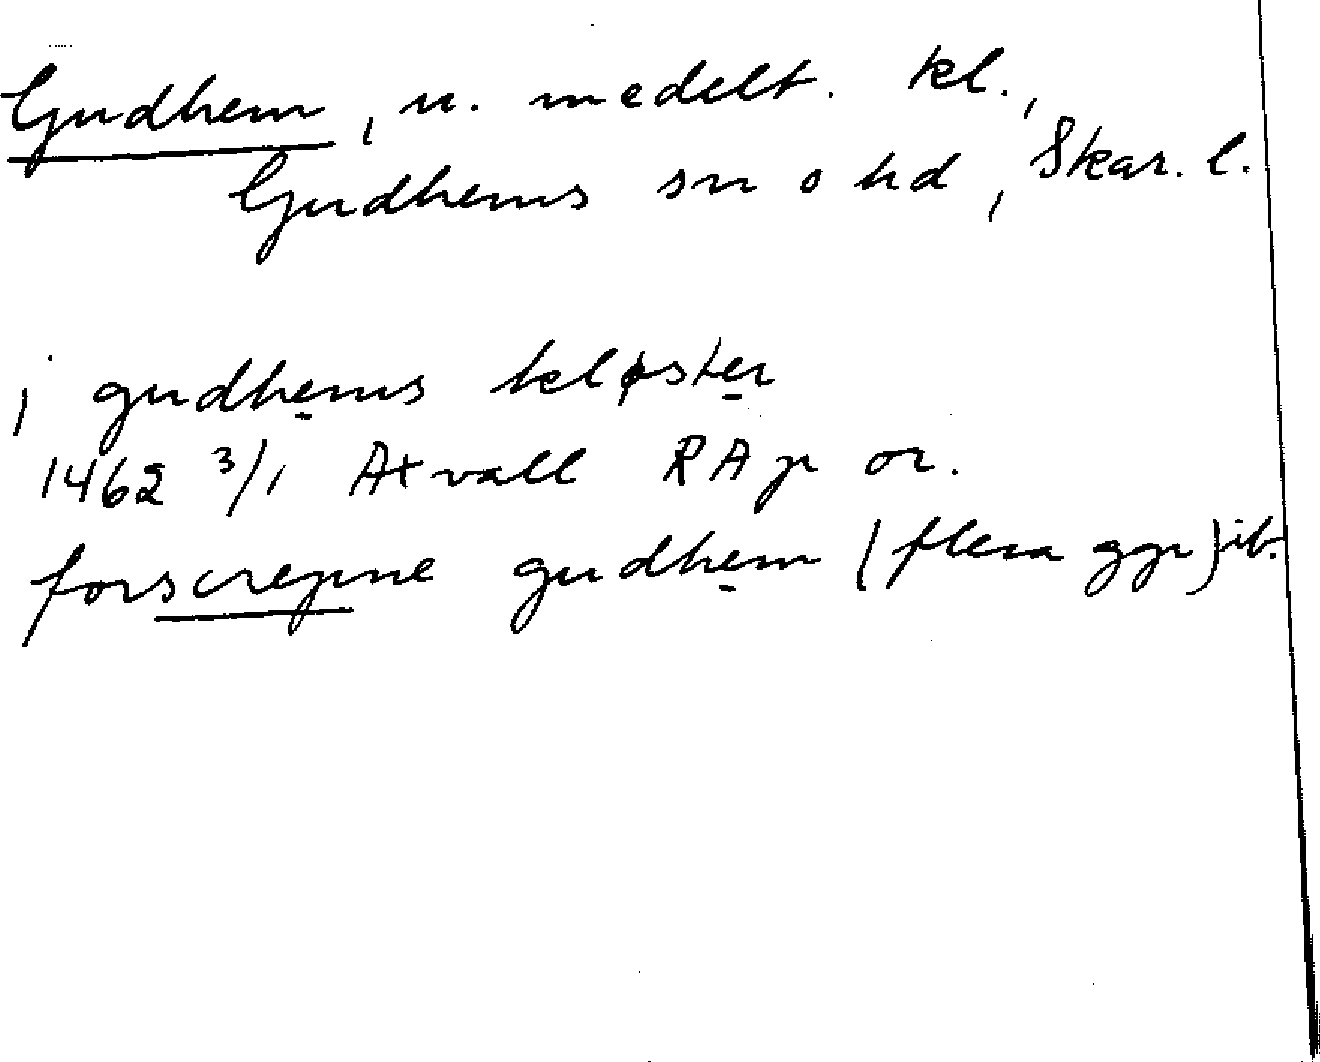 Gudhem, n. medelt. kl.,
Gudhems sn o hd, Skar. l.
j gudhems kløster
1462 3/1 Axvall RAp or.
forscrepne gudhem (flera ggr) ib.